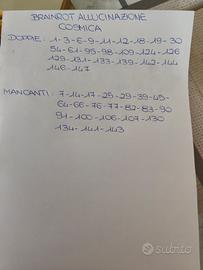 BRAINROT ALLUCINAZIONE
COSMICA
DOPPIE: 1-3-6-9-11-12-18-19-30
54-61-95-98-109-124-126
129-131-133-139-142-144
146-147
MANCANTI: 7-14-17-25-29-39-45-
64-66-76-77-82-83-90
91-100-106-107-130
134-141-143
subito